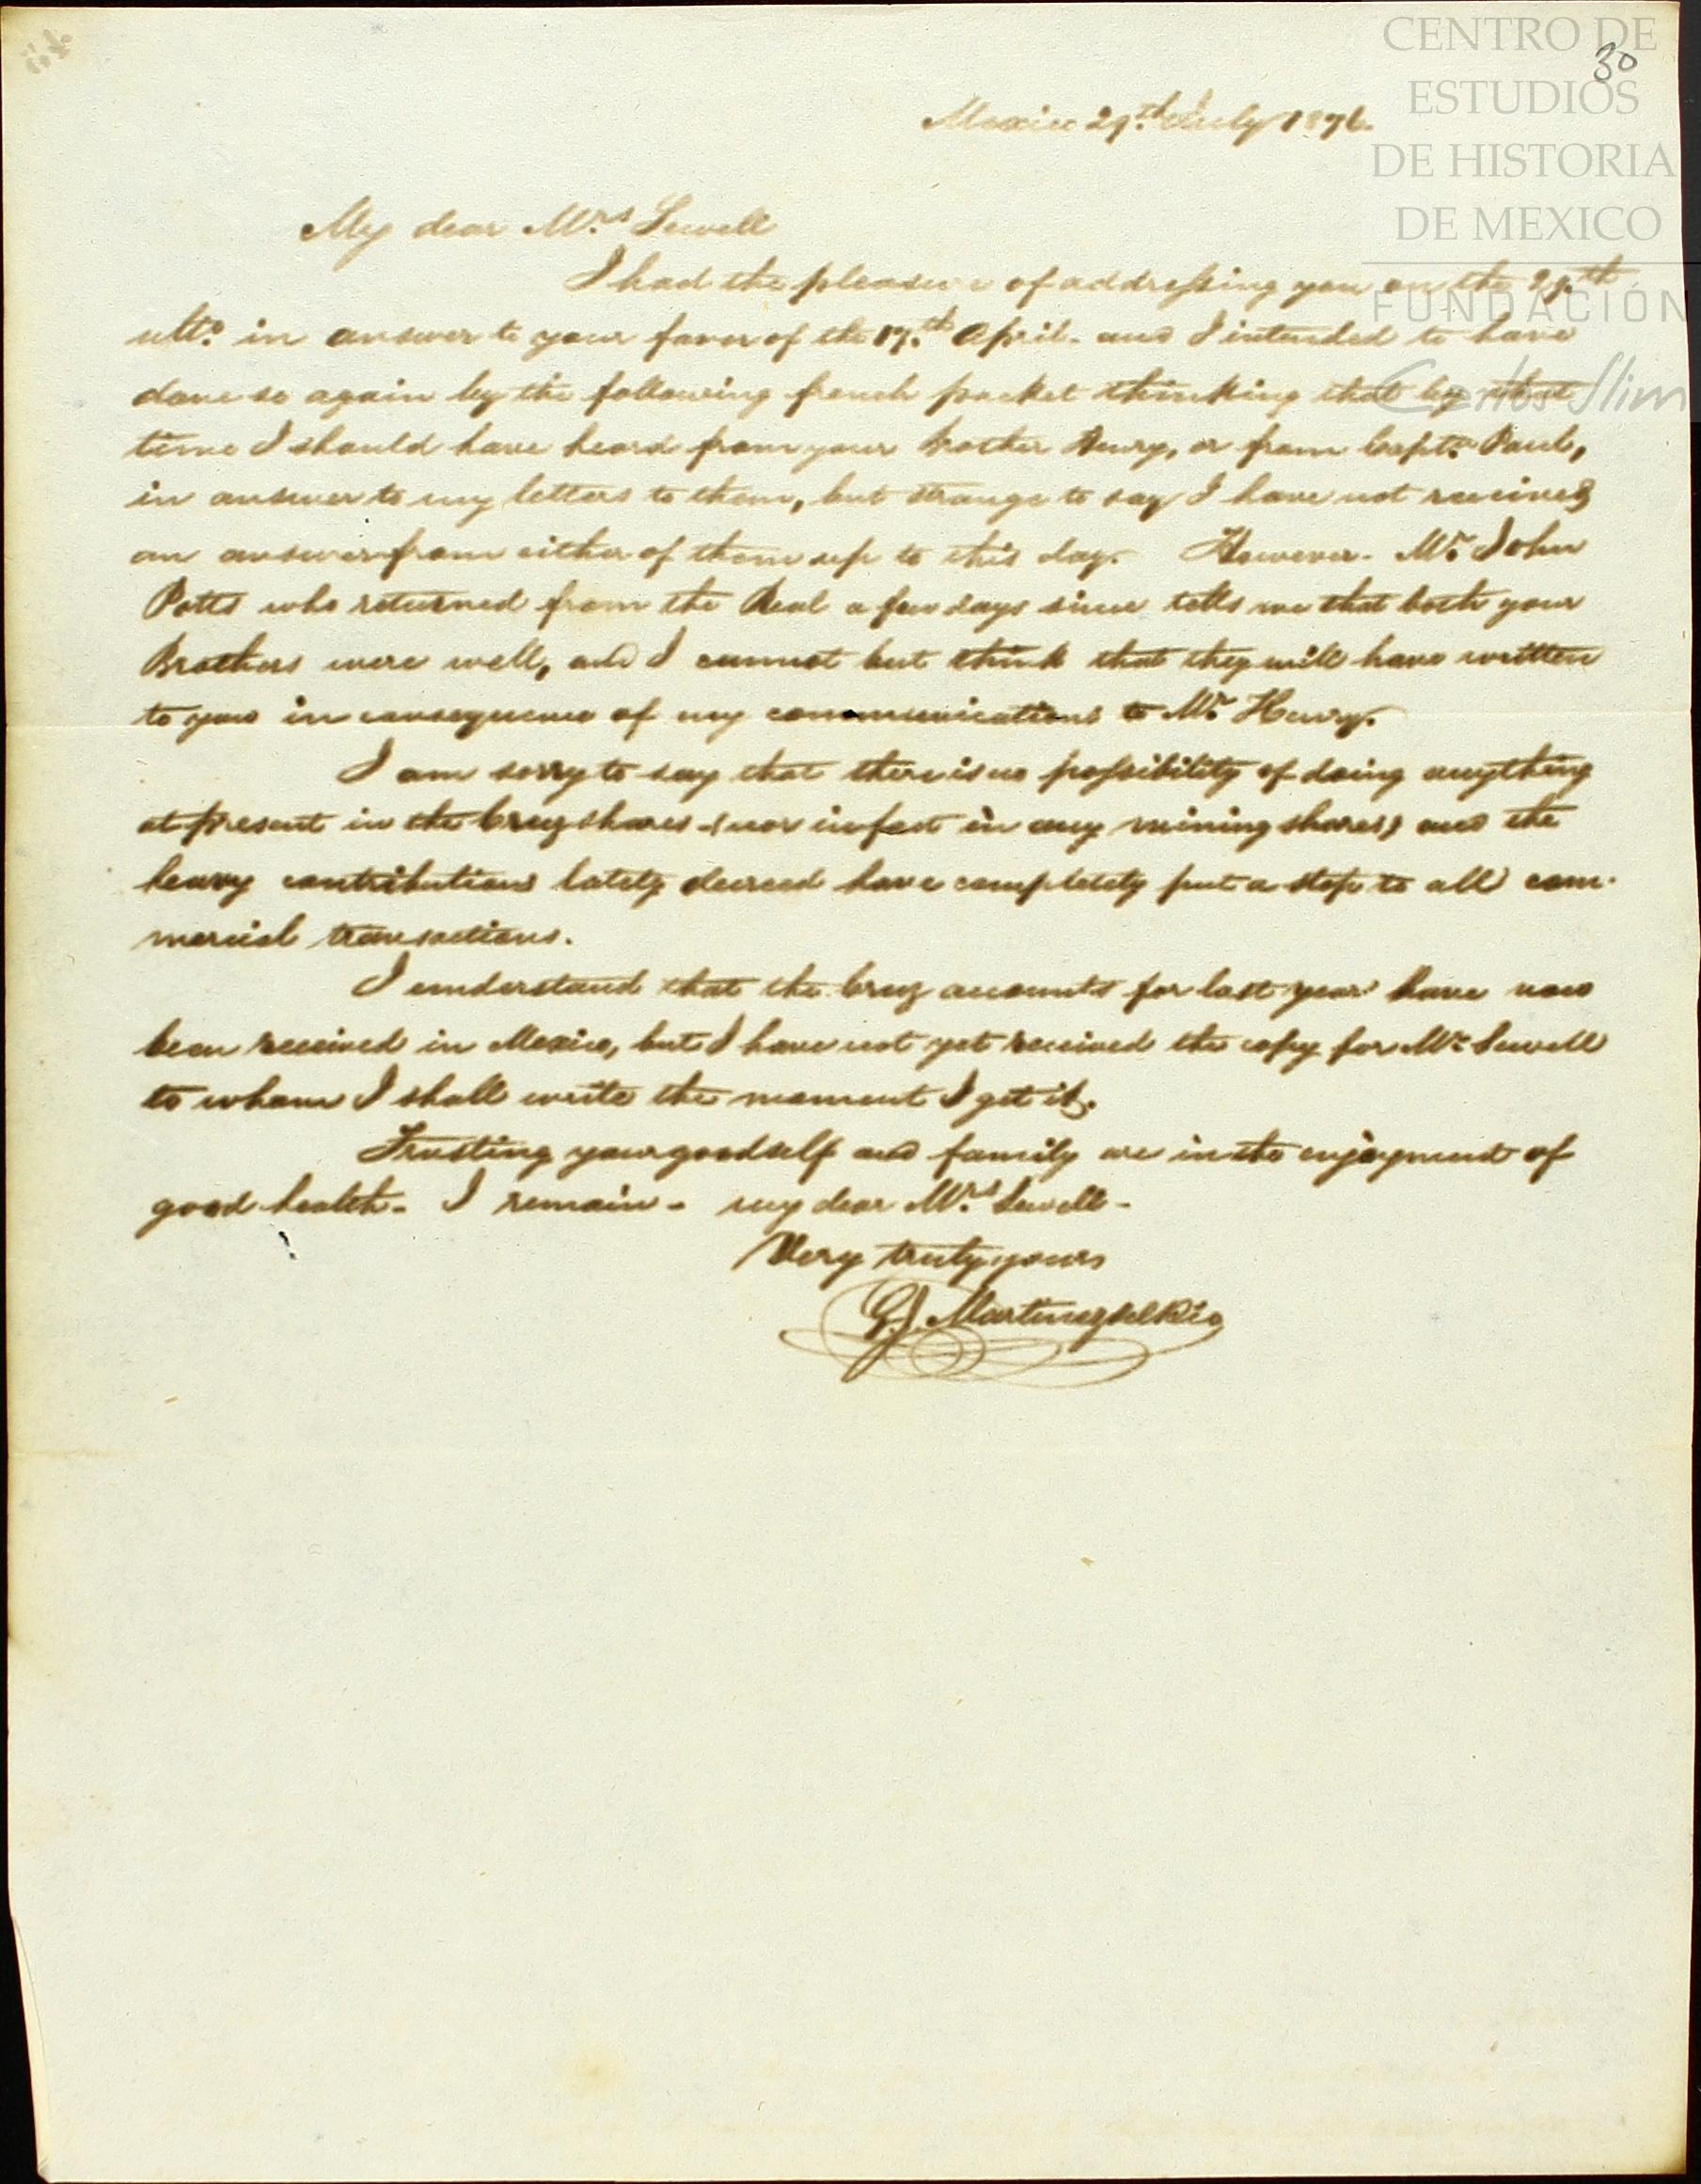 CENTRO DE
ESTUDIOS
DE HISTORIA
DE MEXICO
FUNDACIÓN
Carlos Slim
30
Mexico 29th July 1876.
My dear Mrs Sewell
I had the pleasure of addressing you on the 29th
ulto in answer to your favor of the 17th April. and I intended to have
done so again by the following french packet thinking that by that
time I should have heard from your brother Henry, or from Captn Paul,
in answer to my letters to them, but strange to say I have not received
an answer from either of them up to this day. However. Mr John
Potts who returned from the Real a few days since tells me that both your
Brothers were well, and I cannot but think that they will have written
to you in consequence of my communications to Mr Henry.
I am sorry to say that there is no possibility of doing anything
at present in the Cruz shares (nor in fact in any mining shares) and the
heavy contributions lately decreed have completely put a stop to all com-
mercial transactions.
I understand that the Cruz accounts for last year have now
been received in Mexico, but I have not yet received the copy for Mr Sewell
to whom I shall write the moment I get it.
Trusting your good self and family are in the enjoyment of
good health. I remain - my dear Mrs Sewell -
Very truly yours
G. J. Martinez del Rio